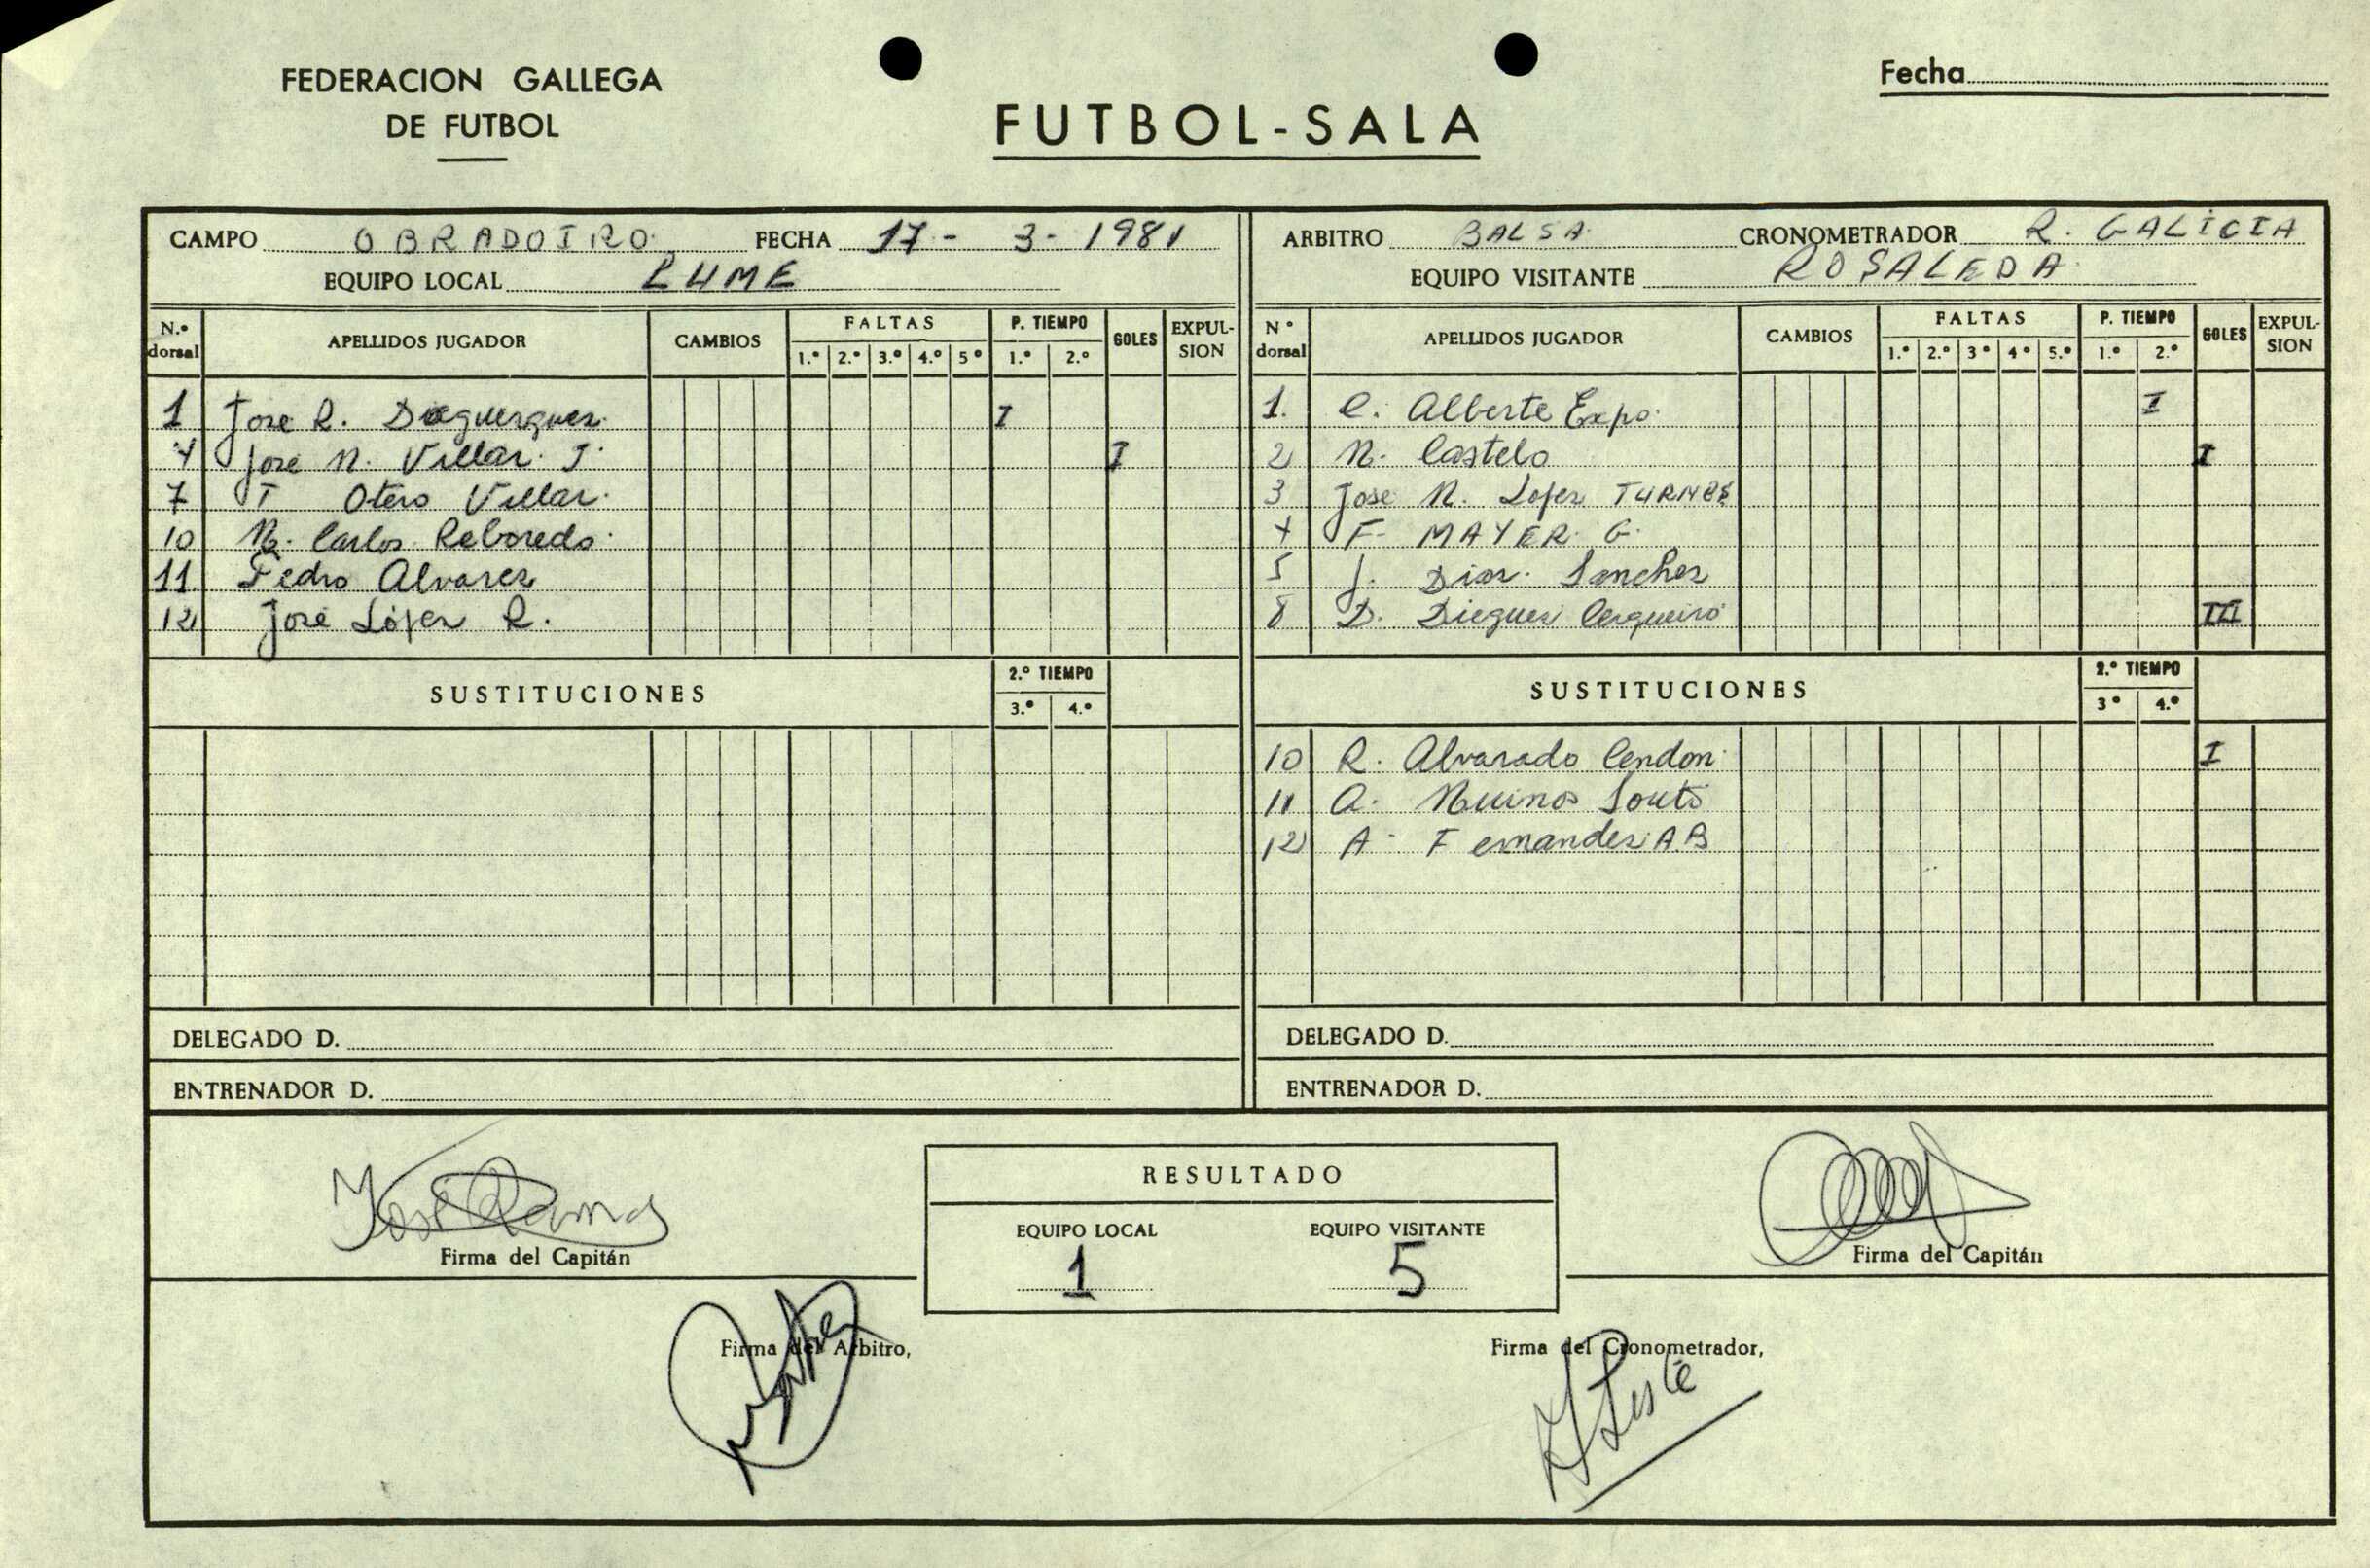 FEDERACION GALLEGA
DE FUTBOL
FUTBOL-SALA
Fecha
CAMPO OBRADOIRO FECHA 17 - 3 - 1981
EQUIPO LOCAL LUME
N.º dorsal APELLIDOS JUGADOR CAMBIOS FALTAS 1.º 2.º 3.º 4.º 5º P. TIEMPO 1.º 2.º GOLES EXPULSION
1 Jose R. I
4 Jose M. Villar J. I
7 J Otero Villar.
10 M. Carlos Reboredo
11 Pedro Alvarez
12 José López R.
SUSTITUCIONES 2.º TIEMPO 3.º 4.º
DELEGADO D.
ENTRENADOR D.
ARBITRO BALSA CRONOMETRADOR R. GALICIA
EQUIPO VISITANTE ROSALEDA
Nº dorsal APELLIDOS JUGADOR CAMBIOS FALTAS 1.º 2.º 3º 4º 5.º P. TIEMPO 1.º 2.º GOLES EXPULSION
1. C. Alberte Expo. I
2 M. Castelo I
3 Jose M. Lopez TURNES
4 F. MAYER G.
5 J. Diaz. Sanchez
8 D. Dieguez Cerqueiro III
SUSTITUCIONES 2.º TIEMPO 3º 4.º
10 R. Alvarado Cendon I
11 A. Muinos Souto
12 A. Fernandez AB
DELEGADO D.
ENTRENADOR D.
José Ramos
Firma del Capitán
RESULTADO
EQUIPO LOCAL EQUIPO VISITANTE
1 5
Firma del Capitán
Firma del Arbitro,
Firma del Cronometrador,